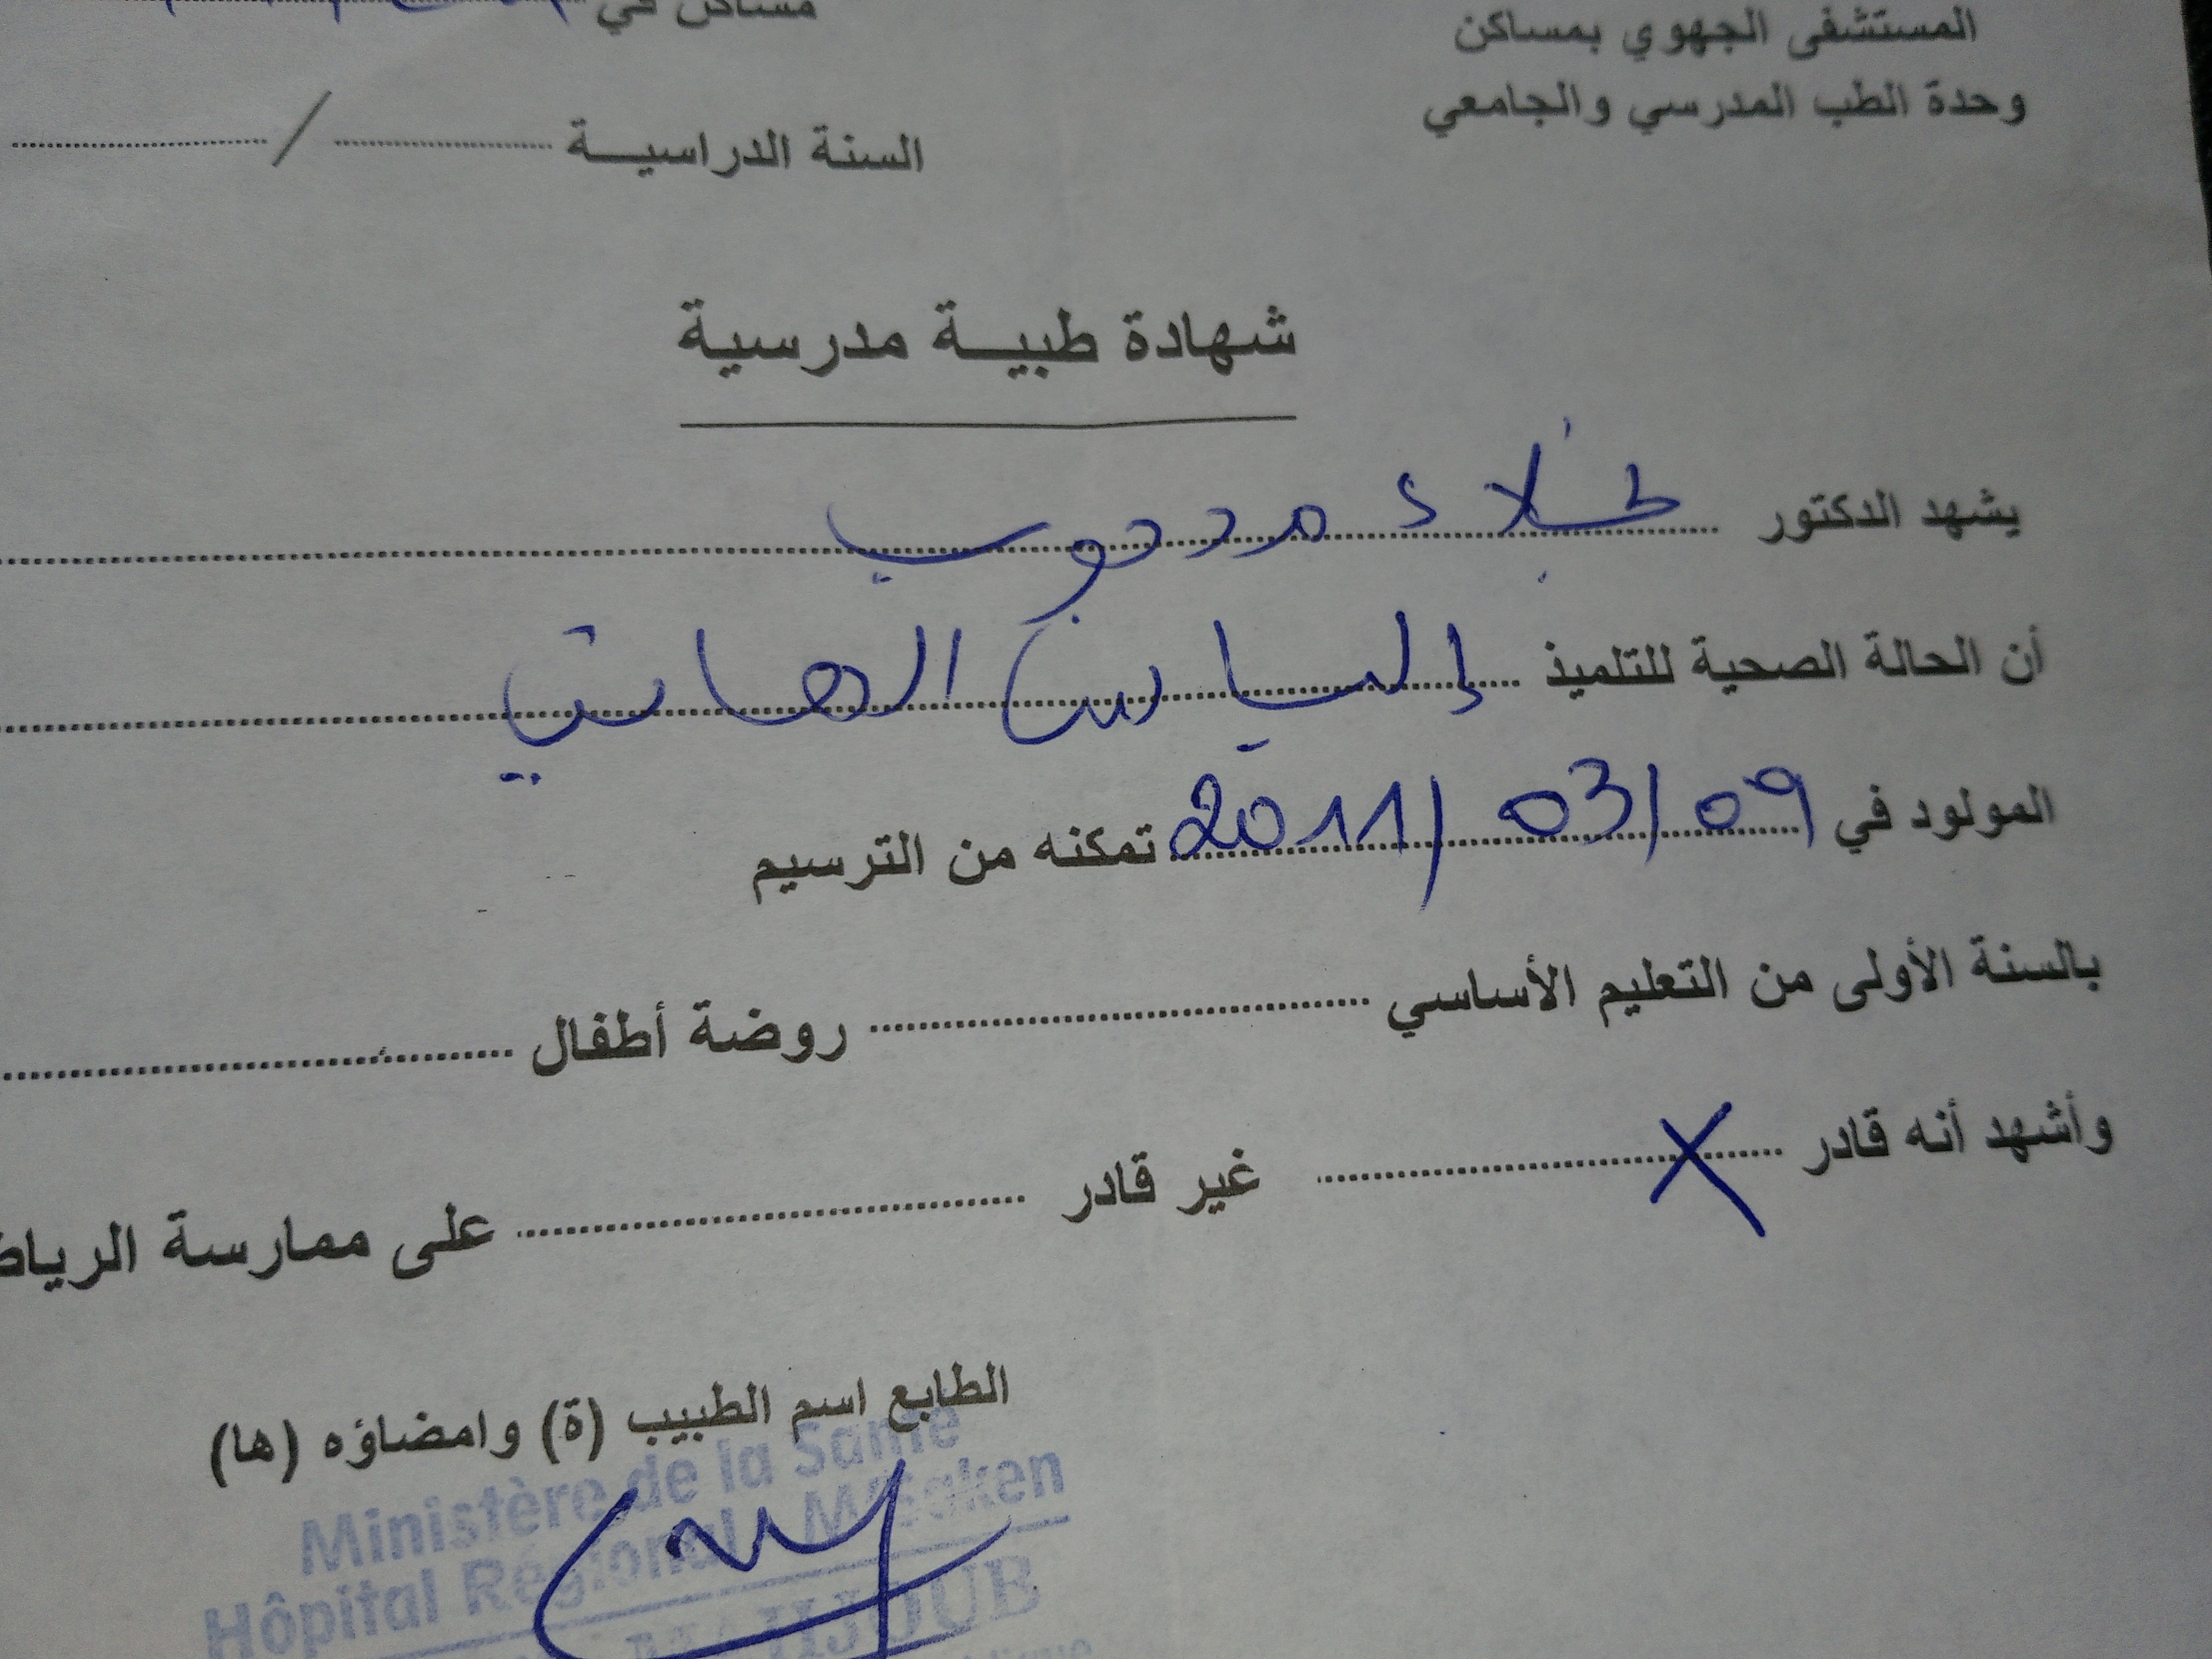 المستشفى الجهوي بمساكن
وحدة الطب المدرسي والجامعي
مساكن في
السنة الدراسيـــة ........ / ........
شهادة طبيـــة مدرسية
يشهد الدكتور
أن الحالة الصحية للتلميذ إلياس
المولود في 09/03/2011 تمكنه من الترسيم
بالسنة الأولى من التعليم الأساسي ........ روضة أطفال ........
وأشهد أنه قادر ...X... غير قادر ........ على ممارسة
الطابع اسم الطبيب (ة) وامضاؤه (ها)
Ministère de la Santé
Hôpital Régional M'Saken